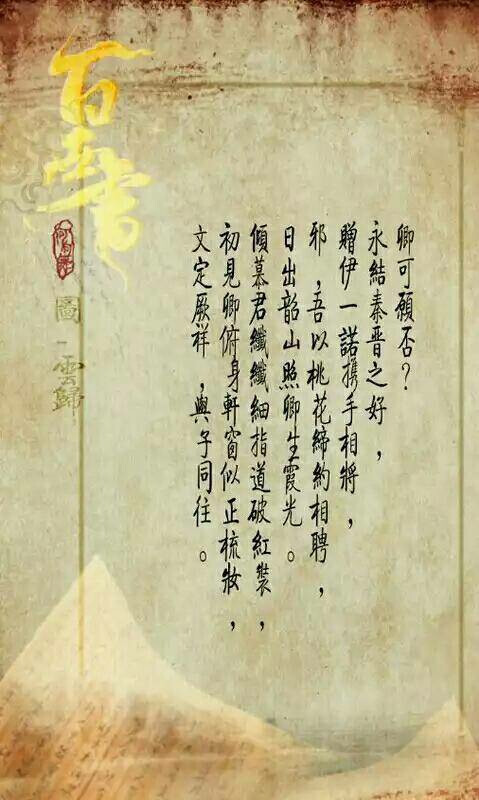 卿可願否？
永結秦晉之好，
贈伊一諾攜手相將，
邪，吾以桃花締約相聘，
日出韶山照卿生霞光。
傾慕君纖纖細指道破紅裝，
初見卿俯身軒窗似正梳妝，
文定厥祥，與子同往。
圖 雲歸